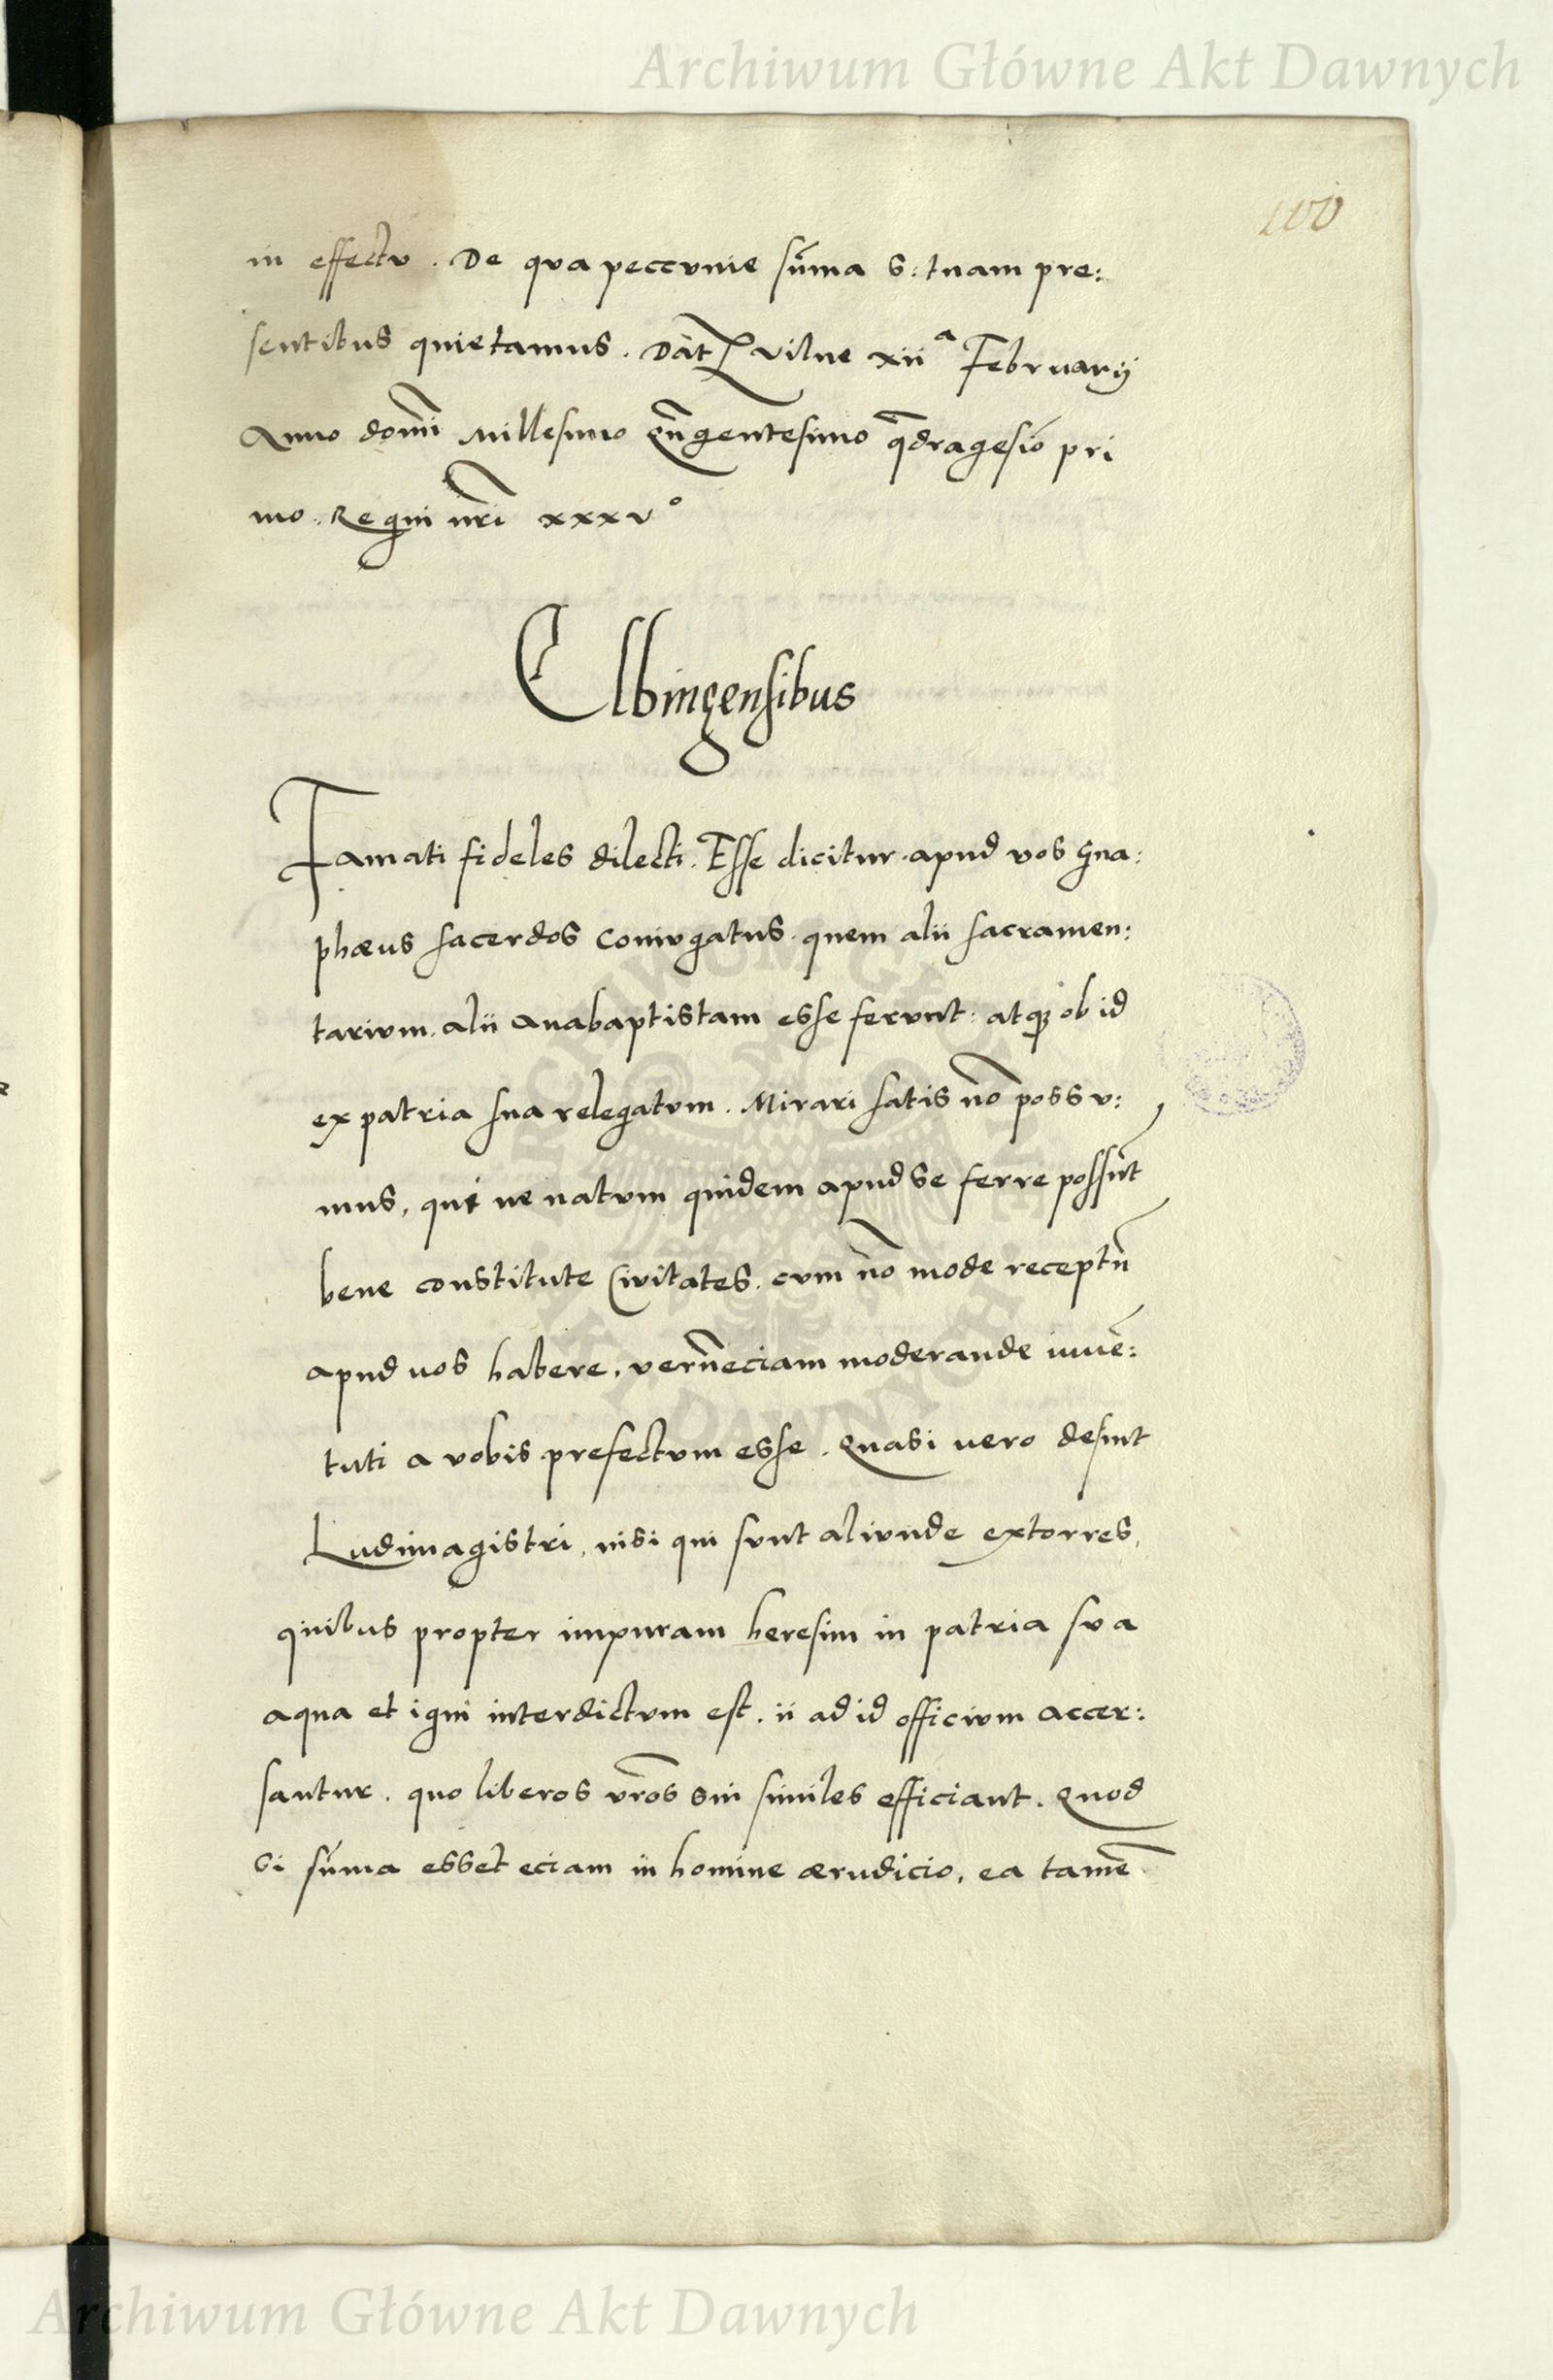 Archiwum Główne Akt Dawnych
100
in effectu . De qua peccunie sūma S: tuam pre:
sentibus quietamus . Dat Vilne xii a Februarij
Anno domī Millesimo qn̄gentesimo q̄dragesiō pri
mo . Regni nr̄i xxxv o
Elbingensibus
Famati fideles dilecti . Esse dicitur . apud vos Gna:
phæus sacerdos Coniugatus . quem alii sacramen:
tarium . alii Anabaptistam esse ferunt : atqꝫ ob id
ex patria sua relegatum . Mirari satis nō possu:
mus , qui ne natum quidem apud se ferre possūt
bene constitute Civitates . cum nō mode receptū
apud vos habere , verūeciam moderande iuvē:
tuti a vobis prefectum esse . Quasi vero desint
Ludimagistri , nisi qui sunt aliunde extorres ,
quibus propter impuram heresim in patria sua
aqua et igni interdictum est . ii ad id officium accer:
santur . quo liberos vr̄os sui similes efficiant . Quod
si sūma esset eciam in homine ærudicio , ea tamē
ARCHIWUM GŁÓWNE AKT DAWNYCH
Archiwum Główne Akt Dawnych